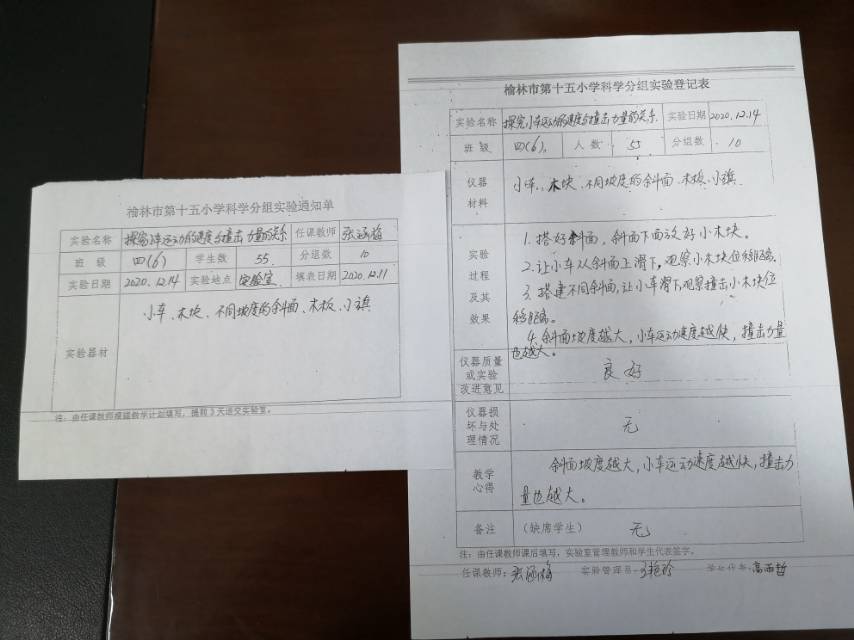 榆林市第十五小学科学分组实验通知单
实验名称 探究小车运动的速度与撞击力量的关系 任课教师
班级 四(6) 学生数 55 分组数 10
实验日期 2020.12.14 实验地点 实验室 填表日期 2020.12.11
实验器材 小车、木块、不同坡度的斜面、木板、小旗
注:由任课教师根据教学计划填写,提前3天送交实验室。
榆林市第十五小学科学分组实验登记表
实验名称 探究小车运动的速度与撞击力量的关系 实验日期 2020.12.14
班级 四(6) 人数 55 分组数 10
仪器材料 小车、木块、不同坡度的斜面、木板、小旗
实验过程及其效果
1.搭好斜面,斜面下面放好小木块。
2.让小车从斜面上滑下,观察小木块位移距离。
3.搭建不同斜面,让小车滑下,观察撞击小木块位
移距离。
4.斜面坡度越大,小车运动速度越快,撞击力量
也越大。
仪器质量或实验改进意见 良好
仪器损坏与处理情况 无
教学心得 斜面坡度越大,小车运动速度越快,撞击力
量也越大。
备注 (缺席学生) 无
注:由任课教师课后填写,实验室管理教师和学生代表签字。
任课教师: 实验管理员: 学生代表: